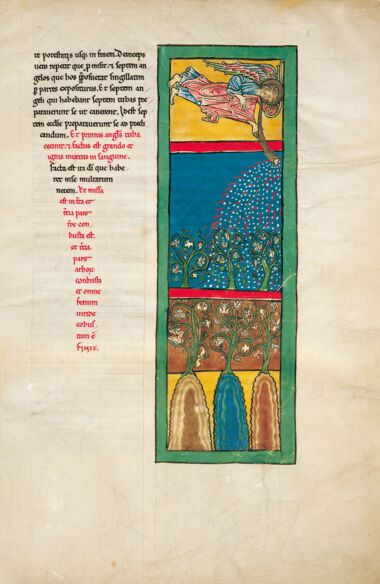 te potestatis usq; in finem. Deinceps
uero repetit que p̄misit. & septem an
gelos que hos p̄posuerat singillatim
ꝑ partes expositurus. Et septem an
geli qui habebant septem tubas pre
parauerunt se ut canerent. hoc est sep
tem ecclē preparauerunt se ad predi
candum. Et primus angl̄s tuba
cecinit. & factus est grando et
ignis mixtus in sanguine.
facta est ira dī que habe
ret in se multarum
necem. Et missa
est in t̄ra et
t̄cia pars
t̄re con
busta est.
et t̄cia
pars
arboꝝ
conbusta
et omne
fenum
uiride
cobus
tum ē
FINIS.